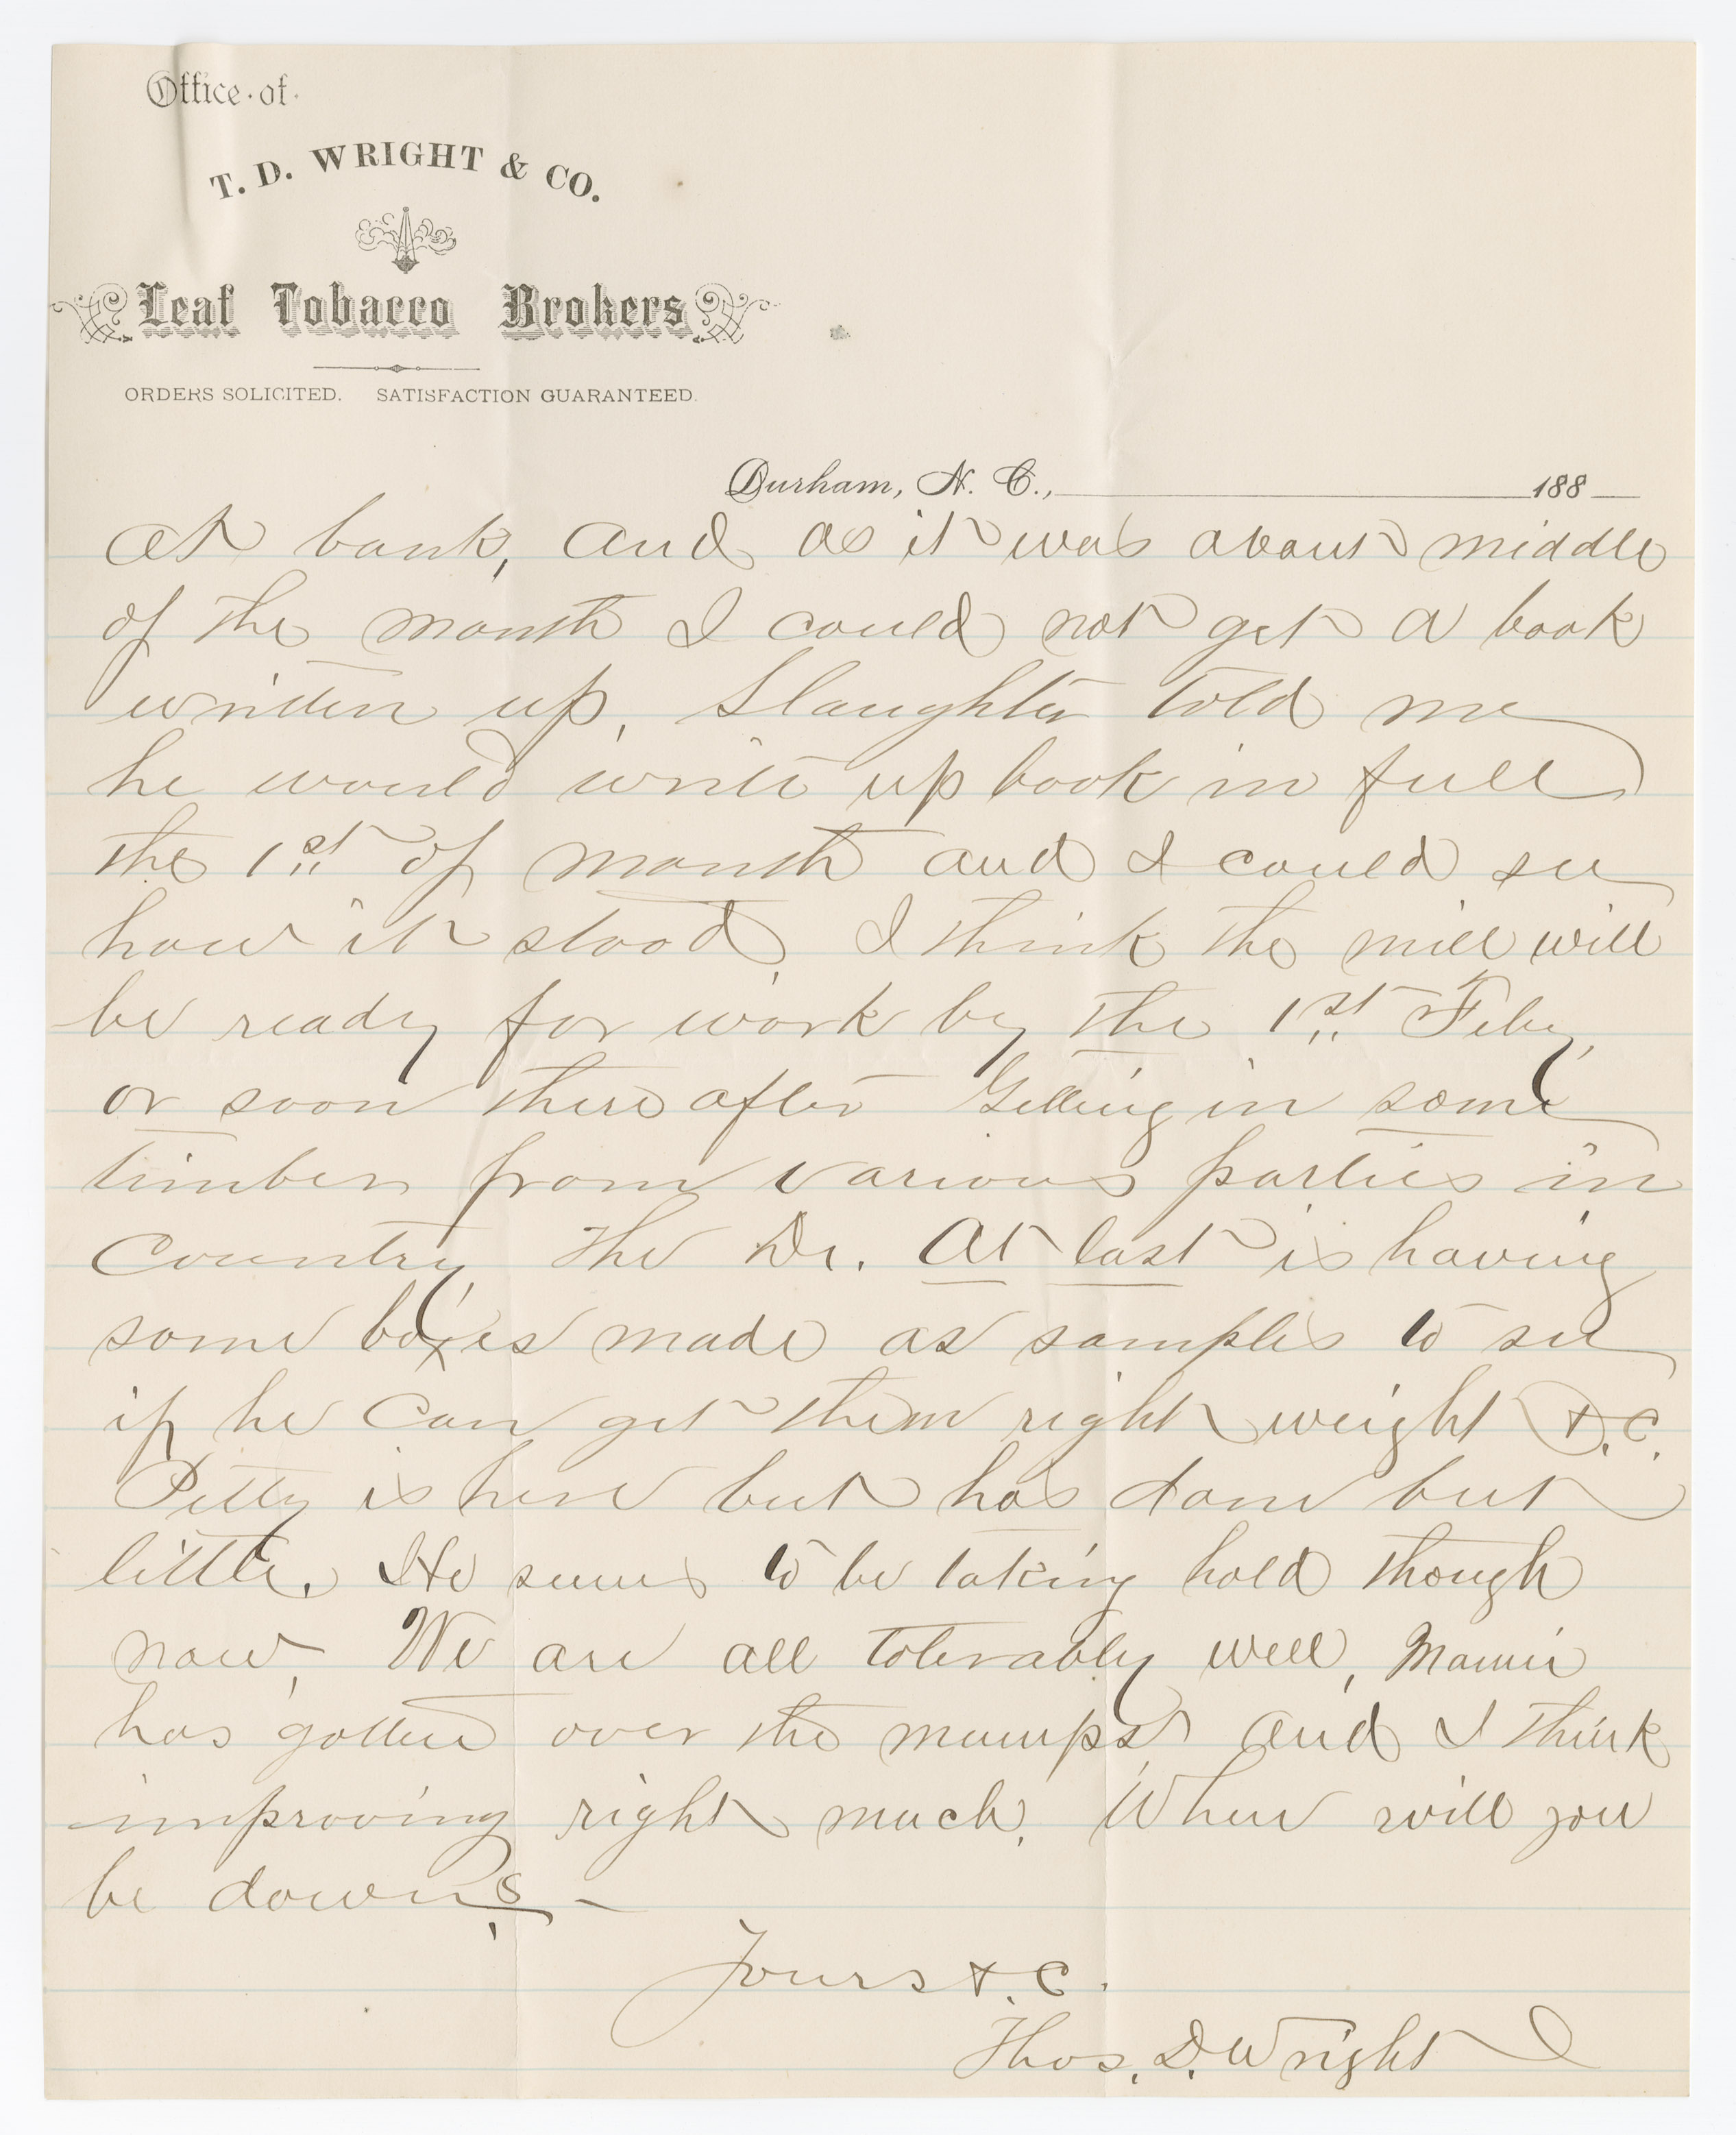 Office of
T. D. WRIGHT & CO.
Leaf Tobacco Brokers
ORDERS SOLICITED. SATISFACTION GUARANTEED.
Durham, N. C., 188
at bank, and as it was about middle
of the month I could not get a book
written up, Slaughter told me
he would write up book in full
the 1st of month and I could see
how it stood. I think the mill will
be ready for work by the 1st Feby,
or soon there after Getting in some
timber from various parties in
Country, The Dr. At last is having
some boxes made as samples to see
if he can get them right weight &.C.
Petty is here but has done but
little. He seems to be taking hold though
now, We are all tolerably well, Mamie
has gotten over the mumps, and I think
improving right much, When will you
be down?
Yours &.C.
Thos. D. Wright